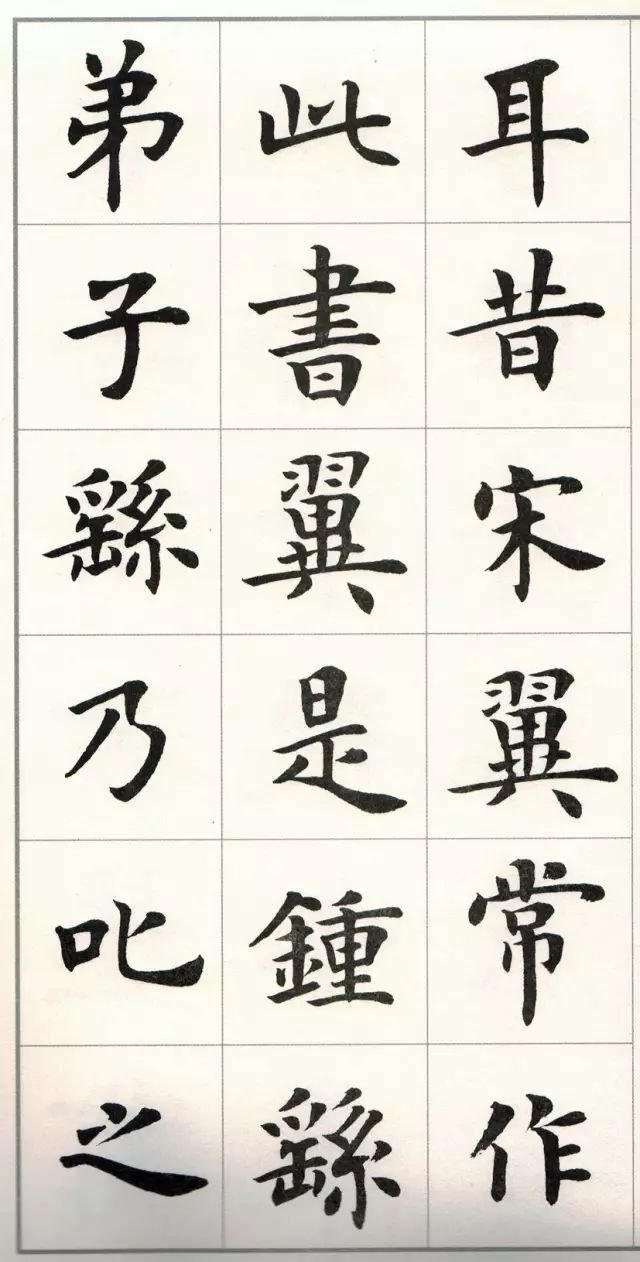 耳昔宋翼常作
此書翼是鍾繇
弟子繇乃叱之